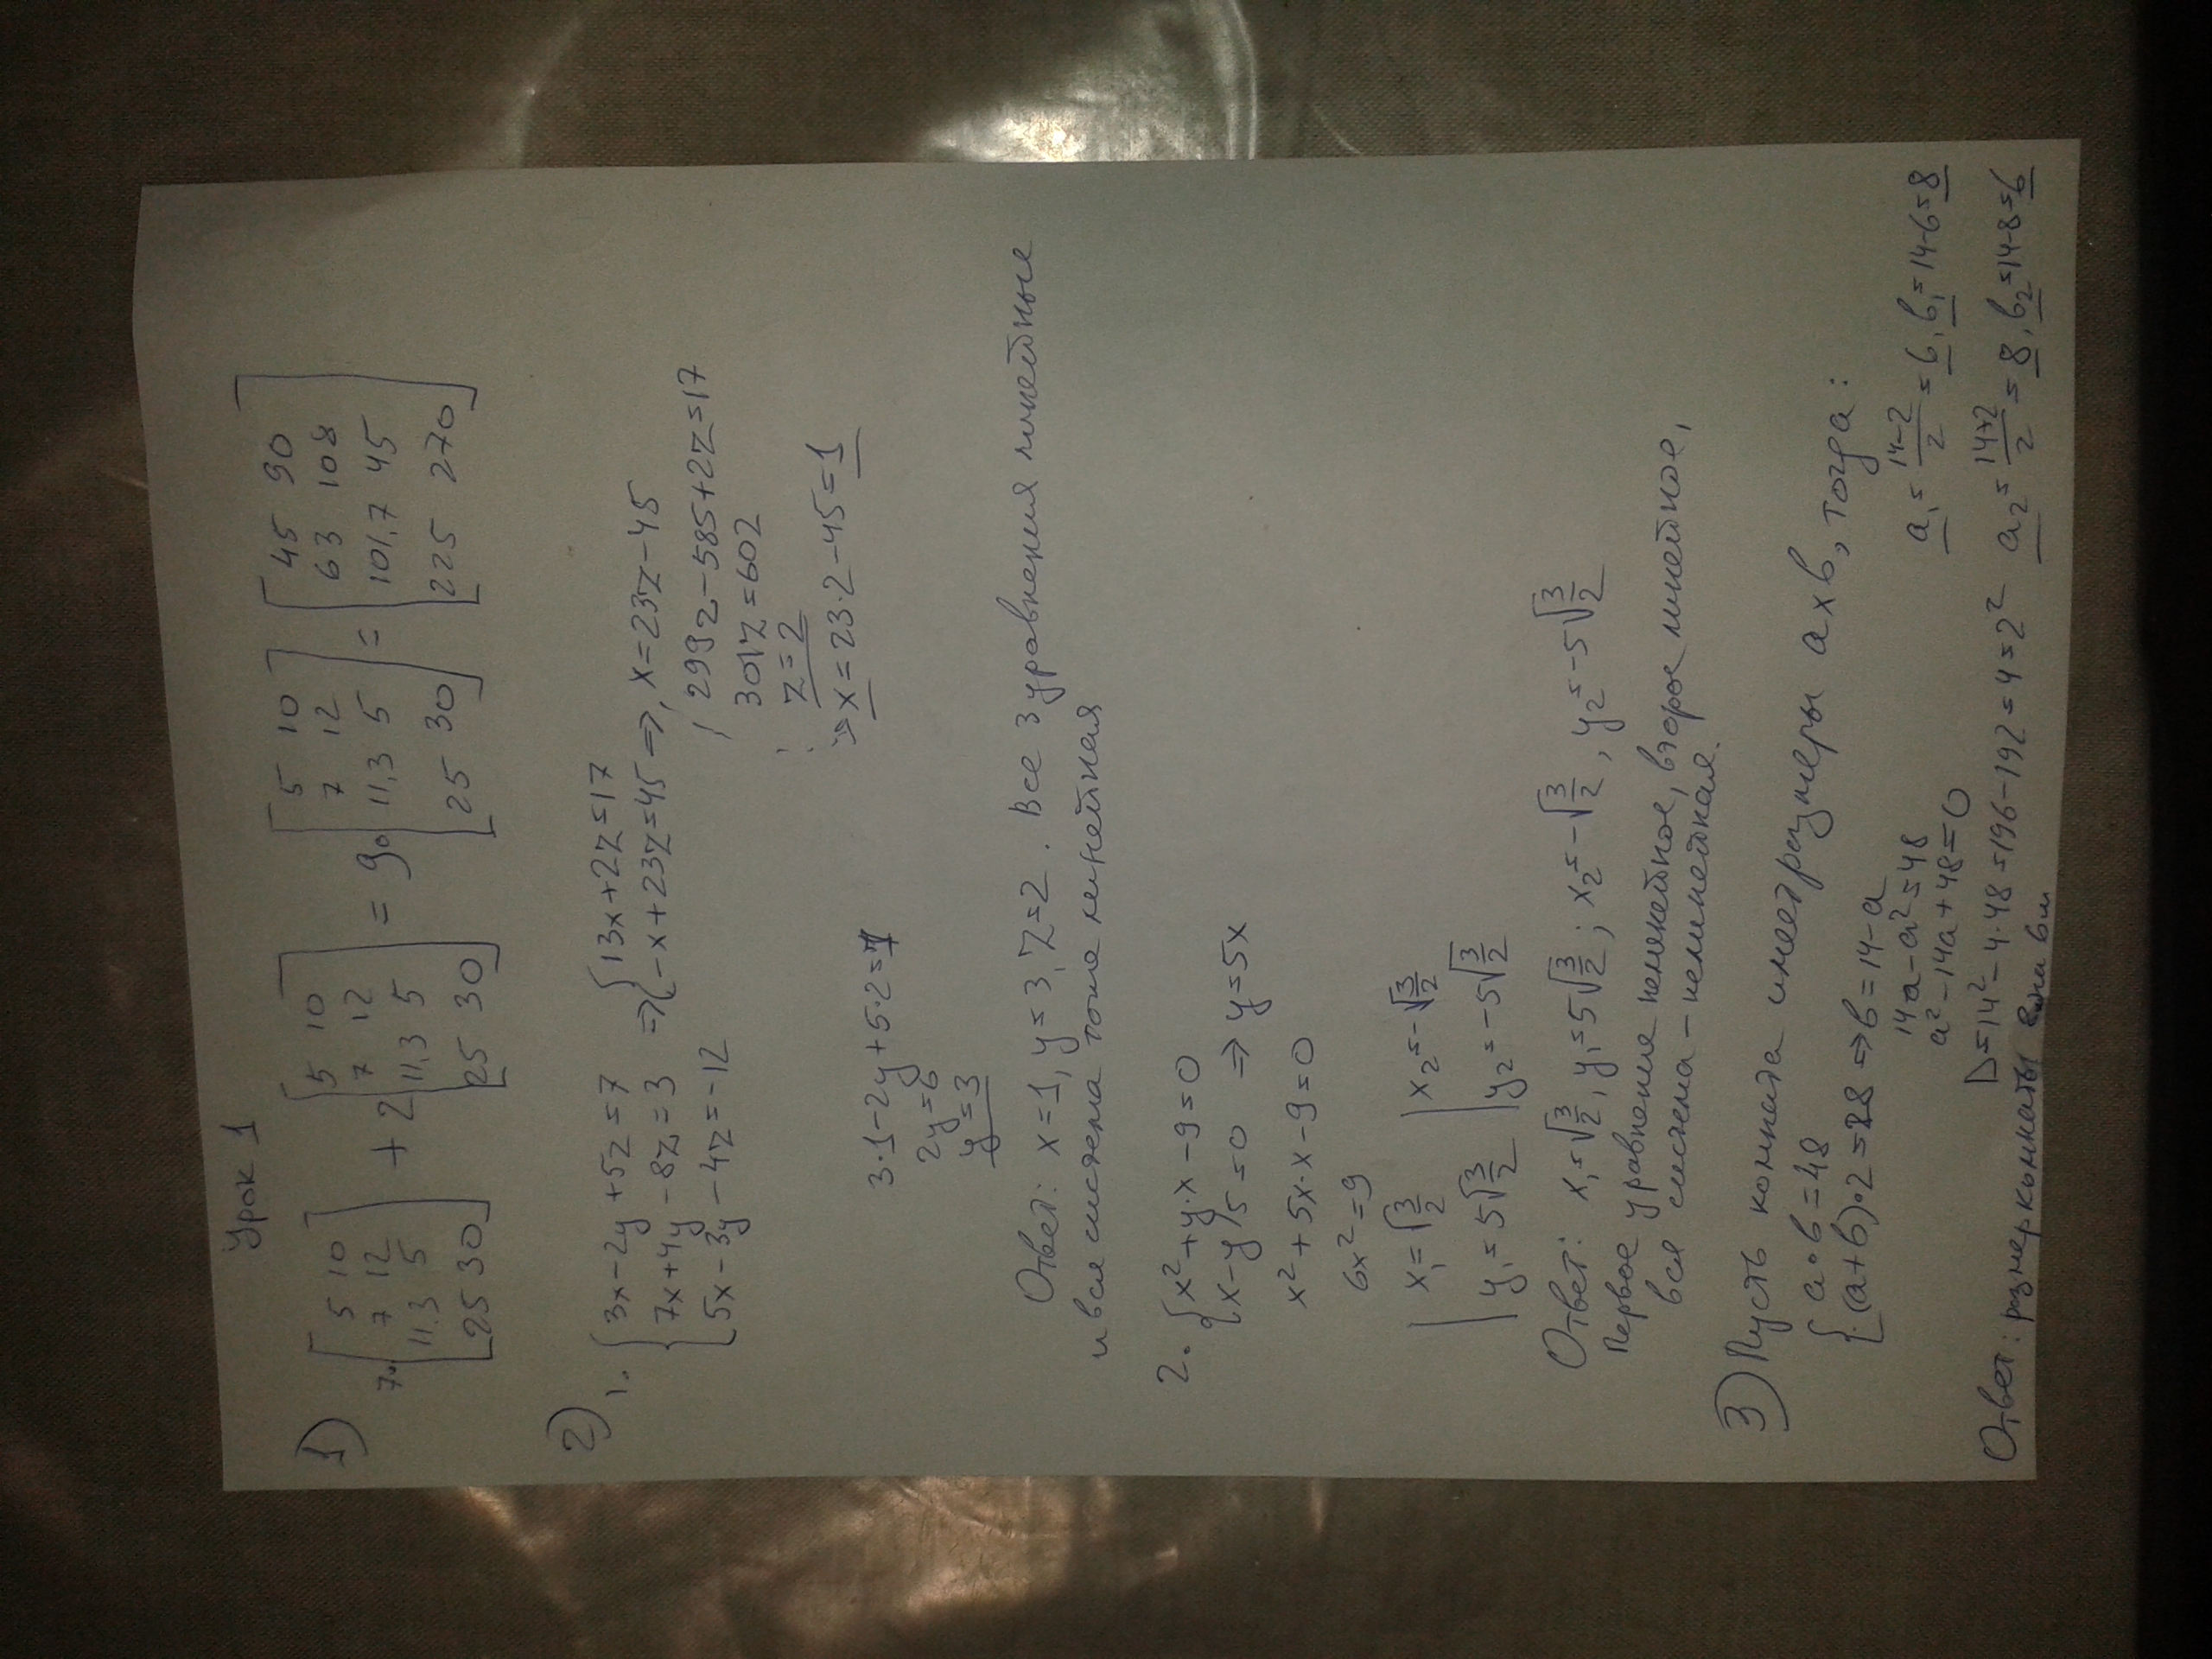 Урок 1
1) 7·[5 10; 7 12; 11,3 5; 25 30] + 2[5 10; 7 12; 11,3 5; 25 30] = 9·[5 10; 7 12; 11,3 5; 25 30] = [45 90; 63 108; 101,7 45; 225 270]
2)
1. {3x-2y+5z=7 ⇒ {13x+2z=17
7x+4y-8z=3 -x+23z=45 ⇒ x=23z-45
5x-3y-4z=-12 299z-585+2z=17
301z=602
z=2
⇒ x=23·2-45=1
3·1-2y+5·2=7
2y=6
y=3
Ответ: x=1, y=3, z=2. Все 3 уравнения линейные
и вся система тоже линейная
2. {x²+y·x-9=0
x-y/5=0 ⇒ y=5x
x²+5x·x-9=0
6x²=9
x₁=√3/2 x₂=-√3/2
y₁=5√3/2 y₂=-5√3/2
Ответ: x₁=√3/2, y₁=5√3/2; x₂=-√3/2, y₂=-5√3/2
Первое уравнение нелинейное, второе линейное,
вся система - нелинейная.
3) Пусть комната имеет размеры a×b, тогда:
{a·b=48
(a+b)·2=28 ⇒ b=14-a
14a-a²=48
a²-14a+48=0
D=14²-4·48=196-192=4=2²
a₁=14-2/2=6, b₁=14-6=8
a₂=14+2/2=8, b₂=14-8=6
Ответ: размер комнаты 8м на 6м